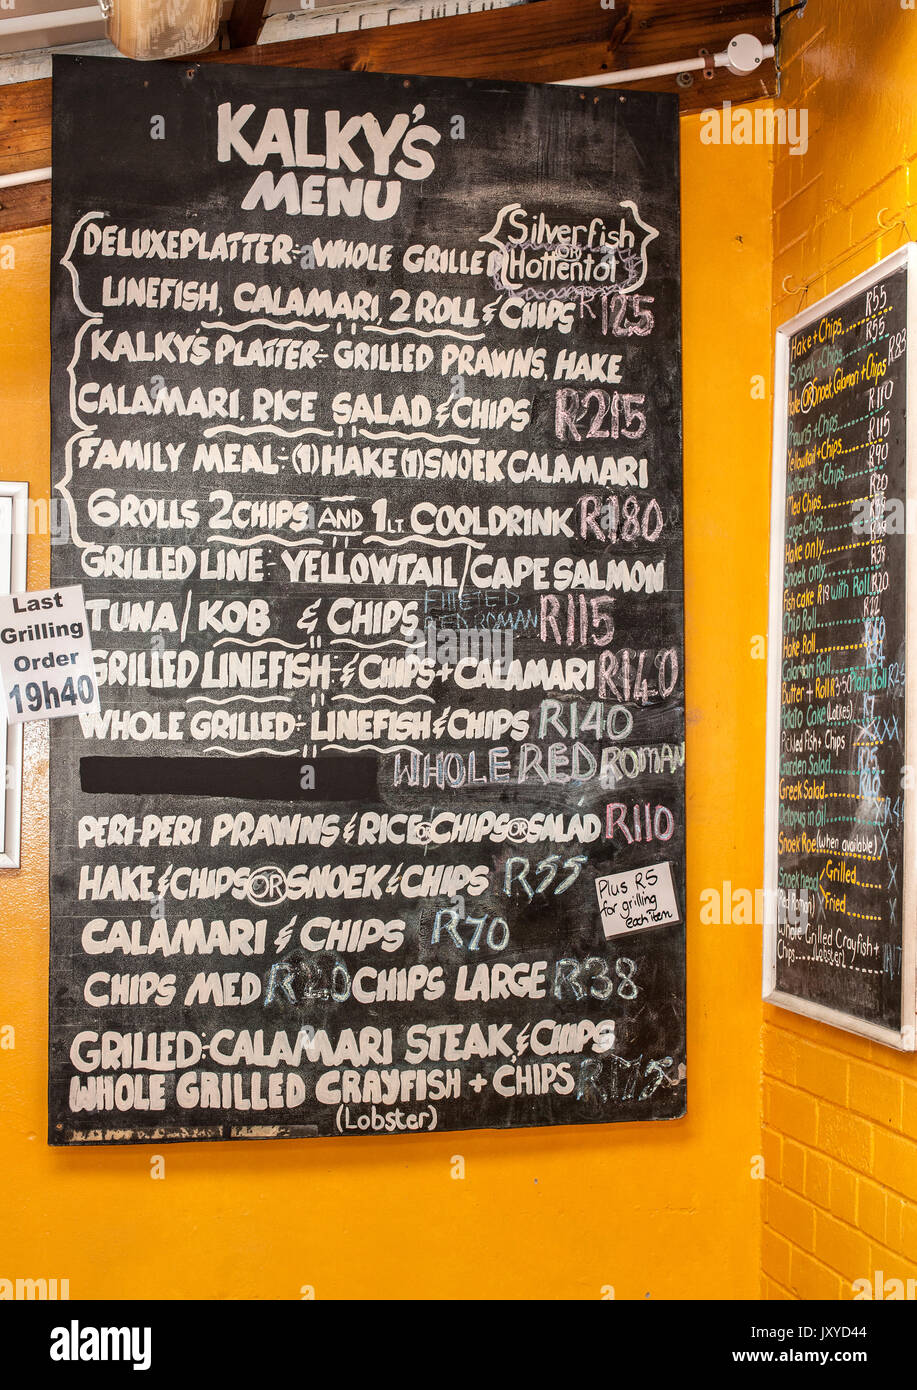 KALKY'S
MENU
DELUXE PLATTER- WHOLE GRILLED
Silverfish
OR
Hottentot
LINEFISH, CALAMARI, 2 ROLL & CHIPS R125
KALKY'S PLATTER- GRILLED PRAWNS, HAKE
CALAMARI, RICE SALAD & CHIPS R215
FAMILY MEAL-(1) HAKE (1) SNOEK CALAMARI
6 ROLLS 2 CHIPS AND 1LT COOLDRINK R180
GRILLED LINE- YELLOWTAIL/CAPE SALMON
TUNA/KOB & CHIPS FILLETED RED ROMAN R115
GRILLED LINEFISH- & CHIPS + CALAMARI R140
WHOLE GRILLED- LINEFISH & CHIPS R140
WHOLE RED ROMAN
PERI-PERI PRAWNS & RICE OR CHIPS OR SALAD R110
HAKE & CHIPS OR SNOEK & CHIPS R55
CALAMARI & CHIPS R70
CHIPS MED R20 CHIPS LARGE R38
GRILLED:CALAMARI STEAK & CHIPS
WHOLE GRILLED CRAYFISH + CHIPS R175
(Lobster)
Plus R5
for grilling
each item
Last
Grilling
Order
19h40
Hake + Chips R55
Snoek + Chips R55
Hake OR Snoek, Calamari + Chips R83
Prawns + Chips R110
Yellowtail + Chips R115
Hottentot + Chips R90
Med Chips R20
Large Chips R38
Hake only
Snoek only R38
Fish cake R19 with Roll R20
Chip Roll
Hake Roll
Calamari Roll
Butter + Roll R3-50 Plain Roll
Potato Cake (Latkes)
Pickled fish + Chips
Garden Salad
Greek Salad
Octopus in oil
Snoek Roe (when available)
Snoek head Grilled
Fried
(Red Roman)
Whole Grilled Crayfish +
Chips (Lobster)
alamy
alamy stock photo
alamy
Image ID: JXYD44
www.alamy.com